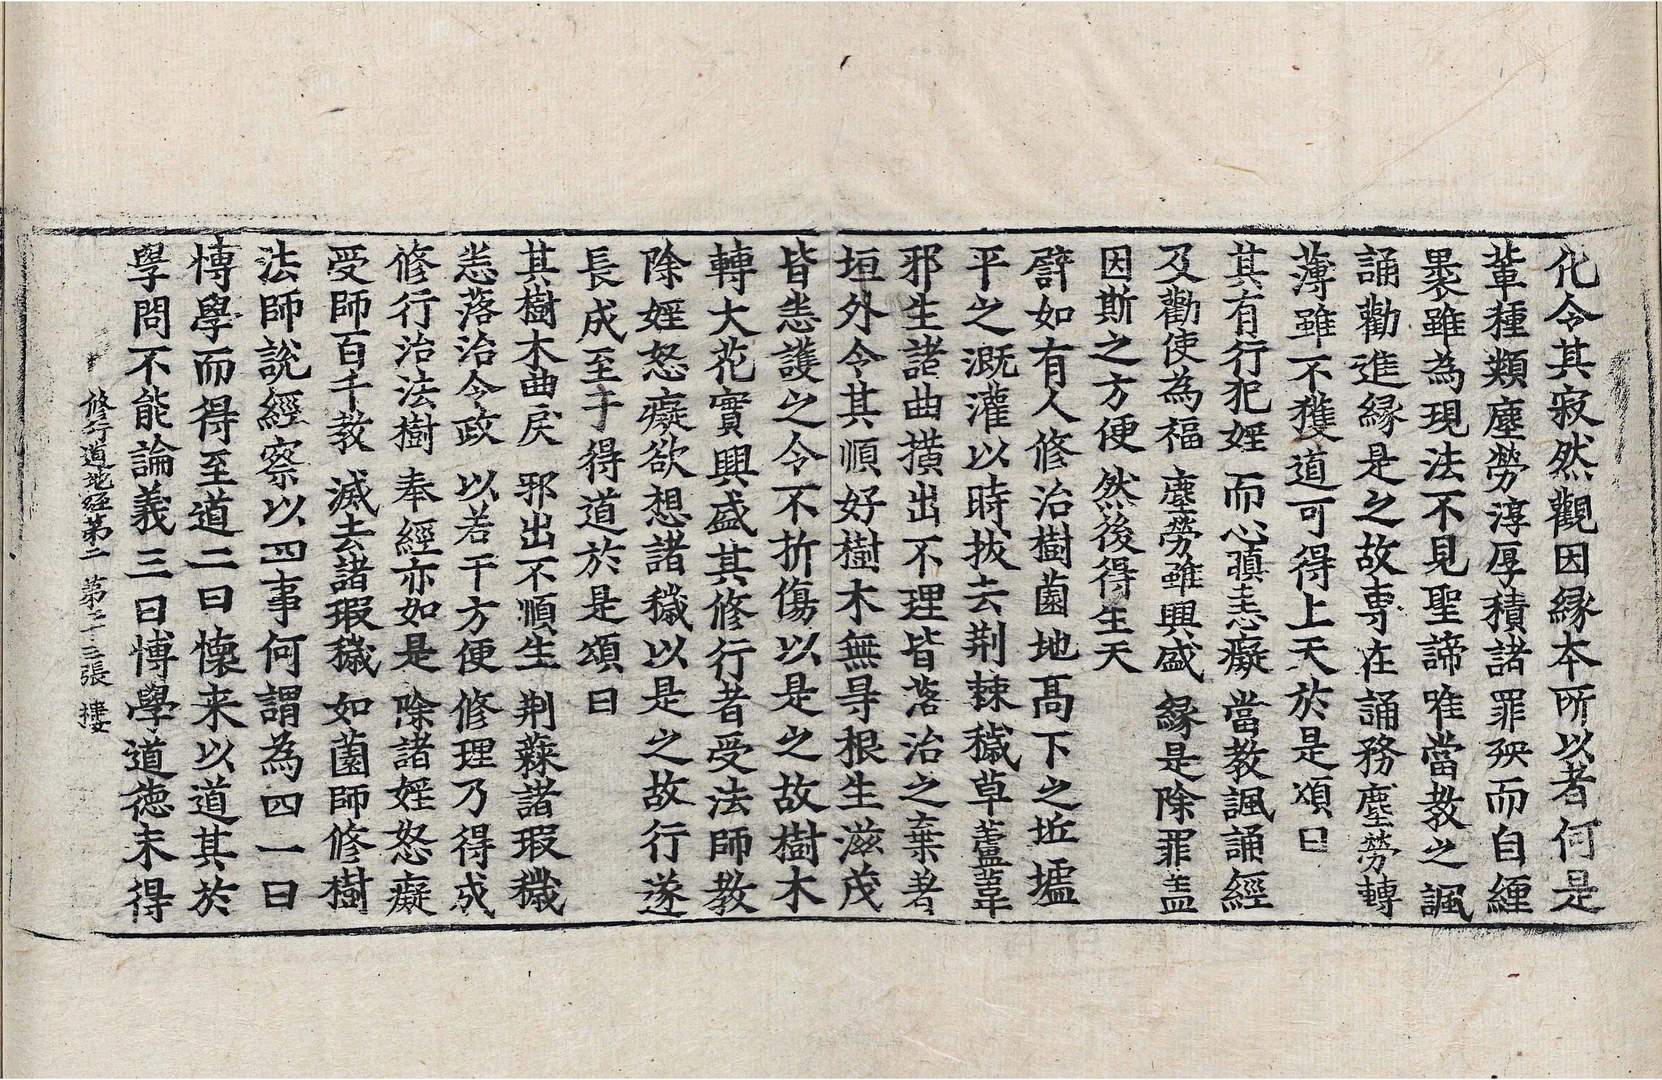 化令其寂然觀因緣本所以者何是
輩種類塵勞淳厚積諸罪殃而自纏
裹雖為現法不見聖諦唯當教之諷
誦勸進緣是之故專在誦務塵勞轉
薄雖不獲道可得上天於是頌曰
其有行犯婬 而心瞋恚癡 當教諷誦經
及勸使為福 塵勞雖興盛 緣是除罪盖
因斯之方便 然後得生天
譬如有人修治樹園地高下之坵墟
平之溉灌以時拔去荆棘穢草蘆葦
邪生諸曲撗出不理皆落治之棄著
垣外令其順好樹木無㝵根生滋茂
皆悉護之令不折傷以是之故樹木
轉大花實興盛其修行者受法師教
除婬怒癡欲想諸穢以是之故行遂
長成至于得道於是頌曰
其樹木曲戾 邪出不順生 荆蕀諸瑕穢
悉落治令政 以若干方便 修理乃得成
修行治法樹 奉經亦如是 除諸婬怒癡
受師百千教 滅去諸瑕穢 如園師修樹
法師說經察以四事何謂為四一曰
博學而得至道二曰懷来以道其於
學問不能論義三曰博學道德未得
修行道地經第二 第二十三張 樓